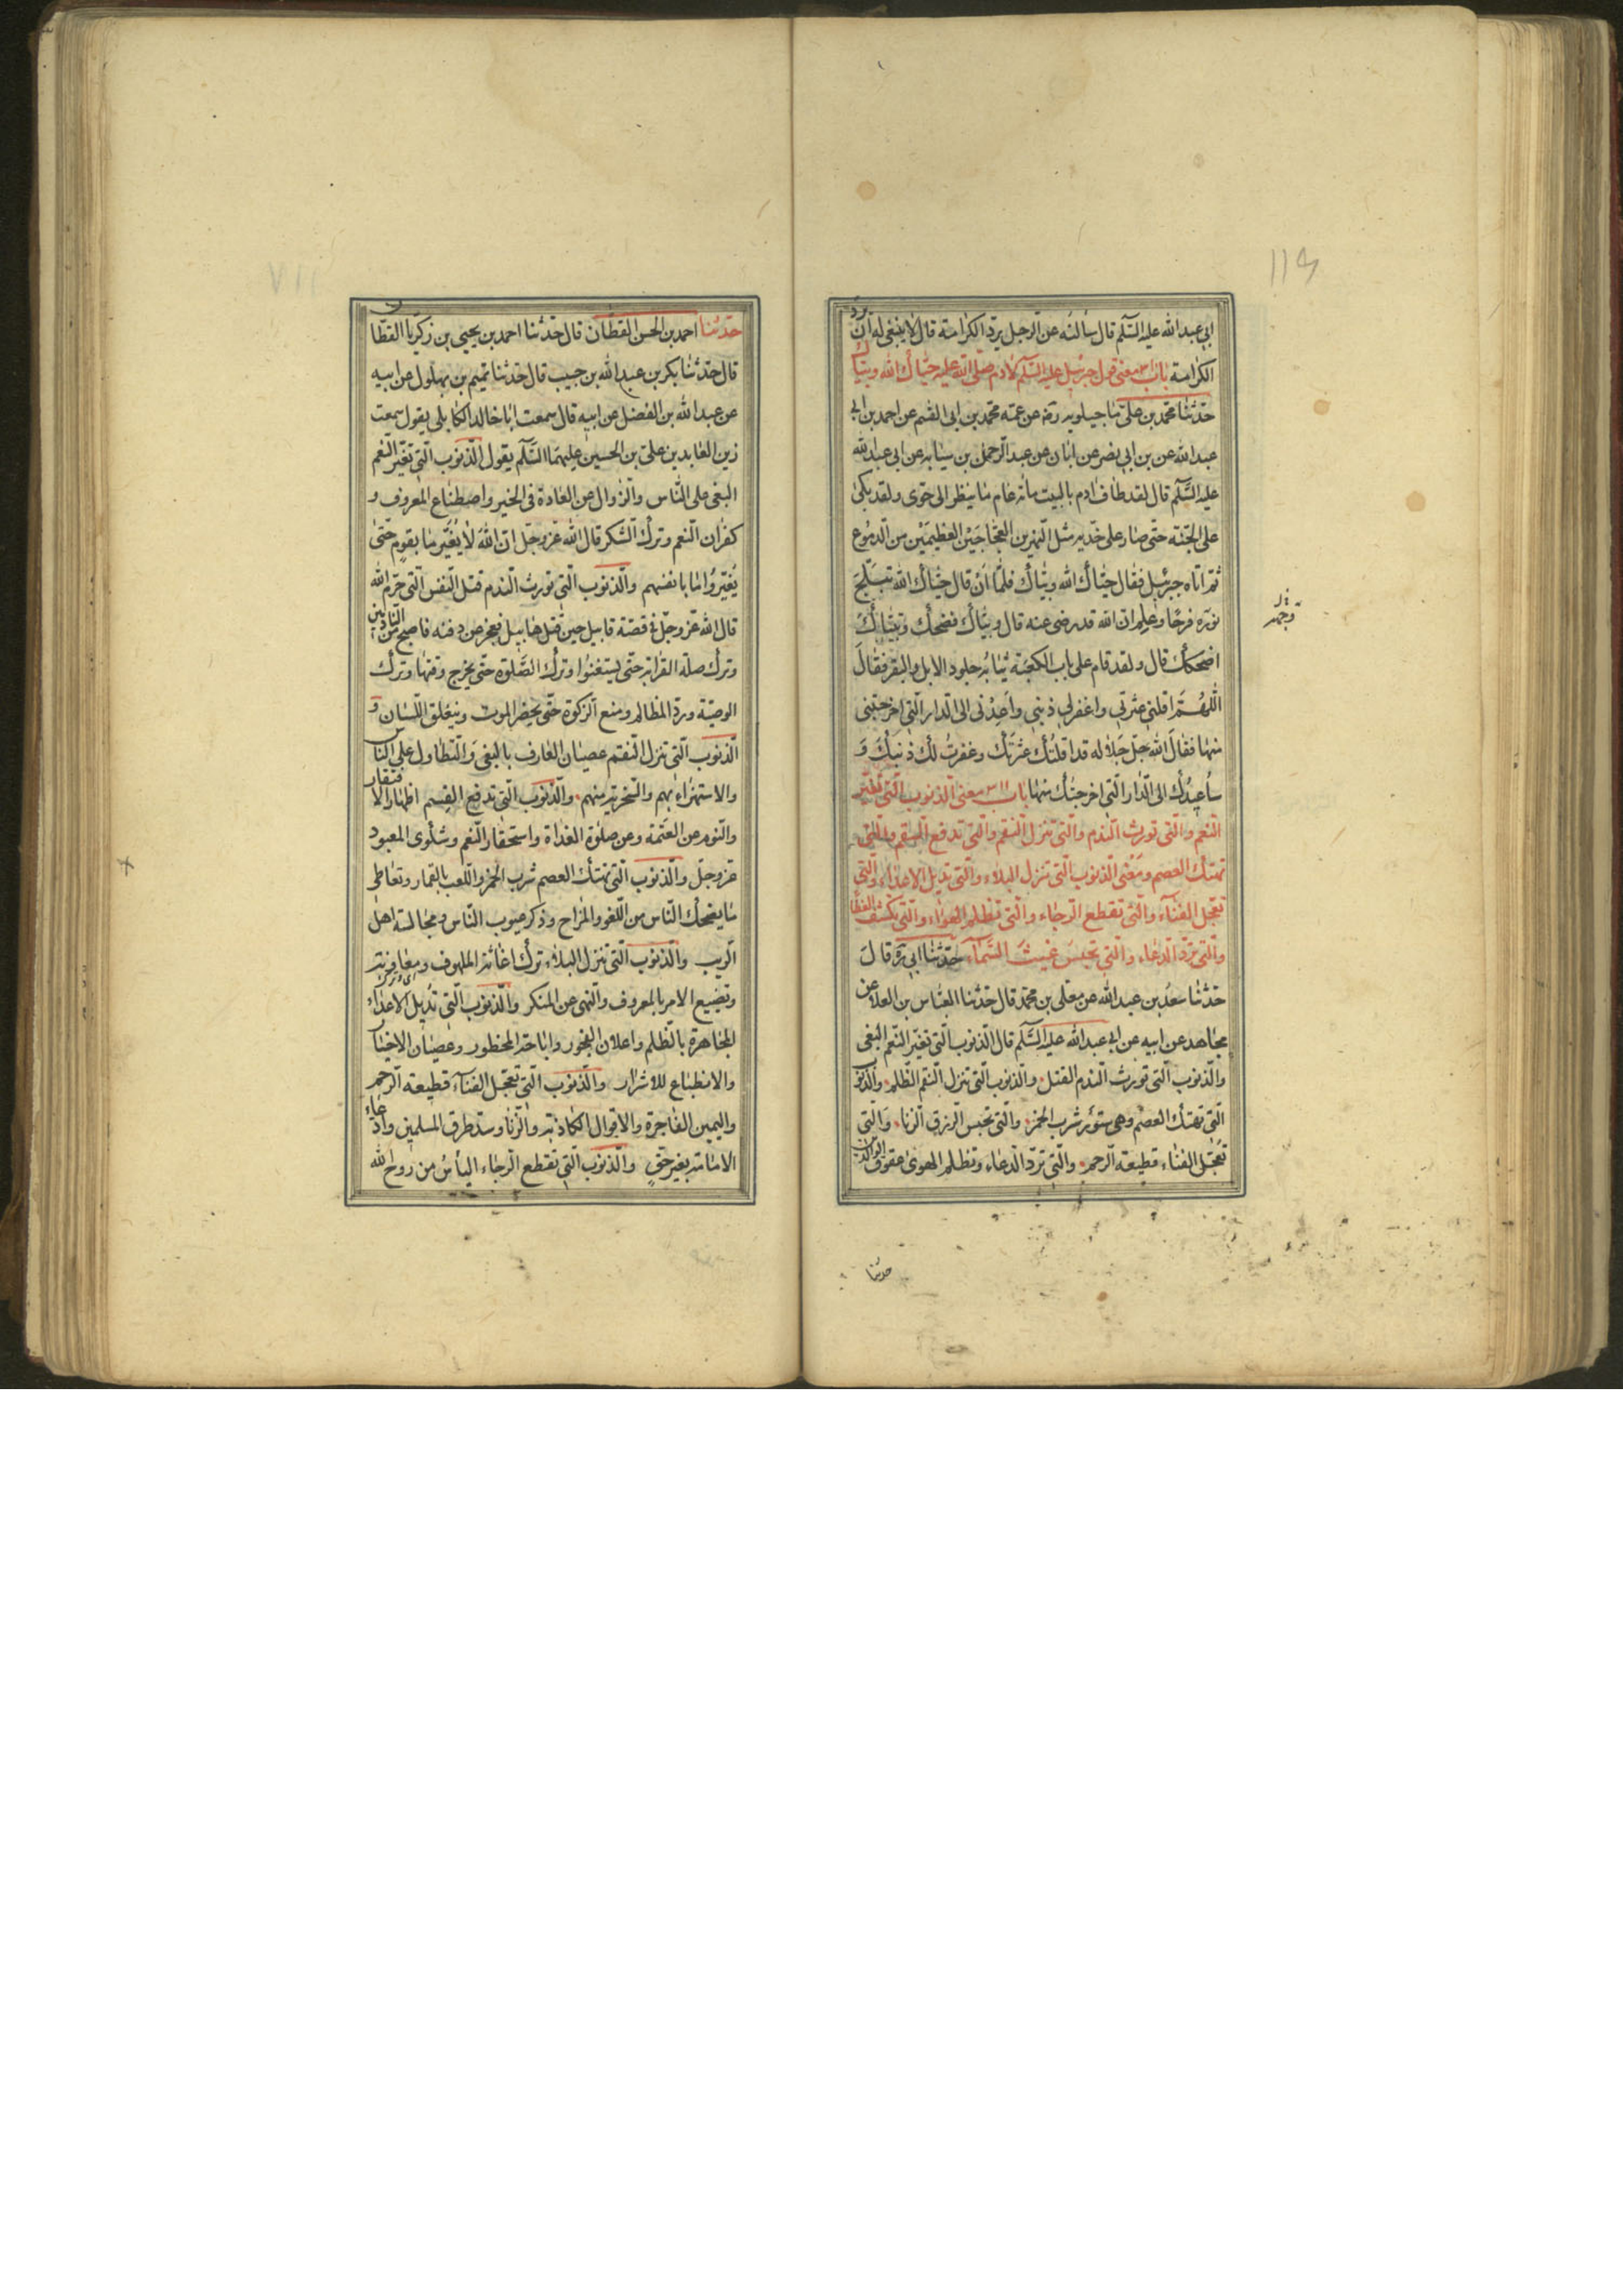 ابى عبد الله عليه السّلم قال سالته عن الرجل يردّ الكرامة قال لا ينبغى له ان يردّ
الكرامة باب معنى قول جبرئيل عليه السّلم لادم صلّى الله عليه حيّاك الله وبيّاك
حدّثنا محمّد بن علىّ ماجيلويه رضه عن عمّه محمّد بن ابى القسم عن احمد بن ابى
عبد الله عن بن ابى نصر عن ابان عن عبد الرّحمن بن سيابه عن ابى عبد الله
عليه السّلم قال لقد طاف ادم بالبيت مائه عام ما ينظر الى حوى ولقد بكى
على الجنّة حتّى صار على خدّيه مثل النّهرين العجّاجَيْن العظيمَيْن من الدّموع
ثمّ اتاه جبرئيل فقال حيّاك الله وبيّاك فلمّا اَنْ قال حيّاك الله تبلّج
نوره فرحًا وعلم ان الله قد رضى عنه قال وبيّاك فضحك وبيّاك
اضحكك قال ولقد قام على باب الكعبة ثيابه جلود الابل والبقر فقال
اللهُمَّ اقلنى عثرتى واغفر لى ذنبى واَعِدْنى الى الدار الّتى اخرجتنى
منها فقال الله جلّ جلاله قد اقلتك عثرتك وغفرت لك ذنبك وَ
سأعيدك الى الدّار الّتى اخرجتك منها باب ٣١١ معنى الذنوب الّتى تغيّر
النّعم والّتى تورث النّدم والّتى تنزل النّقم والّتى تدفع القسم والّتى
تهتك العصم ومعنى الذنوب الّتى تنزل البلاء والّتى تديل الاعداء والّتى
تعجّل الفناء والّتى تقطع الرّجاء والّتى تظلم الهواء والّتى تكشف الغطا
والّتى تردّ الدّعاء والّتى تحبس غيث السّماء حدّثنا ابى ره قال
حدّثنا سعد بن عبد الله عن معلى بن محمّد قال حدّثنا العبّاس بن العلا عن
مجاهد عن ابيه عن ابى عبد الله عليه السّلم قال الذنوب الّتى تغيّر النّعم البغى
والذنوب الّتى تورث النّدم القتل والذنوب الّتى تنزل النّقم الظّلم والذنوب
الّتى تهتك العصم وهى ستور شرب الخمر والّتى تحبس الرزق الزنا والّتى
تعجّل الفناء قطيعة الرّحم والّتى تردّ الدعاء وتظلم الهوى عقوق الوالدين
حدثنا
حدّثنا احمد بن الحسن القطّان قال حدّثنا احمد بن يحيى بن زكريّا القطّان
قال حدّثنا بكر بن عبد الله بن حبيب قال حدّثنا تميم بن بهلول عن ابيه
عن عبد الله بن الفضل عن ابيه قال سمعت ابا خالد الكابلى يقول سمعت
زين العابدين على بن الحسين عليهما السّلم يقول الذنوب الّتى تغيّر النّعم
البغى على النّاس والزوال عن العادة فى الخير واصطناع المعروف و
كفران النّعم وترك الشّكر قال الله عزوجلّ ان الله لا يُغيّر ما بقوم حتّى
يُغيّروا ما بانفسهم والذنوب الّتى تورث النّدم قتل النّفس الّتى حرّم الله
قال الله عزوجلّ فى قصّة قابيل حين قتل هابيل فعجز عن دفنه فاصبح من النّادمين
وترك صلة القرابة حتّى يستغنوا وترك الصّلوة حتّى يخرج وقتها وترك
الوصيّة وردّ المظالم ومنع الزكوة حتّى يحضر الموت وينغلق اللّسان و
الذنوب الّتى تنزل النّقم عصيان العارف بالبغى والتّطاول على النّاس
والاستهزاء بهم والسّخرية منهم والذنوب الّتى تدفع القسم اظهار الافتقار
والنّوم عن العتمة وعن صلوة الغداة واستحقار النّعم وشكوى المعبود
عزوجلّ والذنوب الّتى تهتك العصم شرب الخمر واللّعب بالقمار وتعاطى
ما يضحك النّاس من اللّغو والمزاح وذكر عيوب النّاس ومجالسة اهل
الريب والذنوب الّتى تنزل البلاء ترك اغاثة الملهوف ومعاونة
وتضييع الامر بالمعروف والنّهى عن المنكر والذنوب الّتى تديل الاعداء
المجاهرة بالظّلم واعلان الفجور واباحة المحظور وعصيان الاخيار
والانطباع للاشرار والذنوب الّتى تعجّل الفناء قطيعة الرّحم
واليمين الفاجرة والاقوال الكاذبة والزنا وسدّ طرق المسلمين وادّعاء
الامامة بغير حقّ والذنوب الّتى تقطع الرّجاء اليأس من روح الله